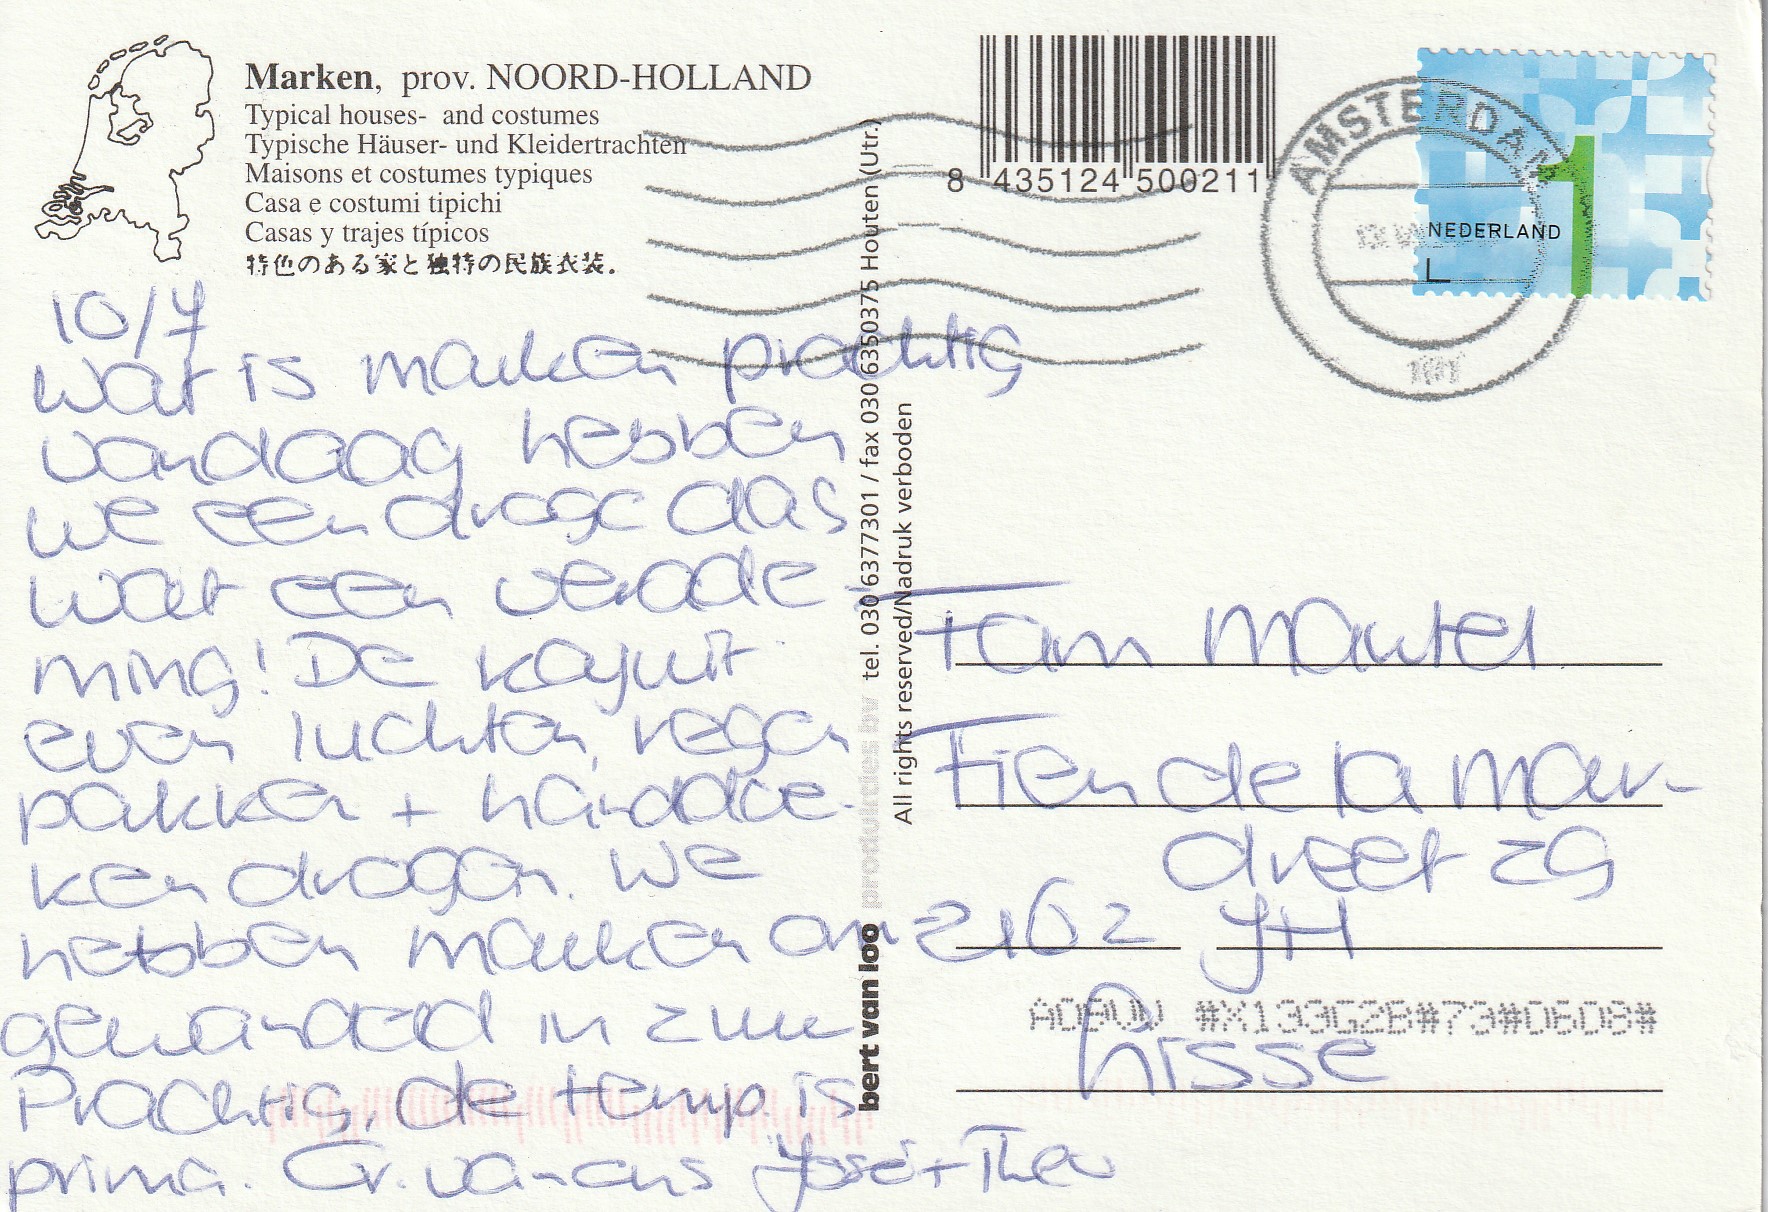 Marken, prov. NOORD-HOLLAND
Typical houses- and costumes
Typische Häuser- und Kleidertrachten
Maisons et costumes typiques
Casa e costumi tipichi
Casas y trajes típicos
特色のある家と独特の民族衣装.
8 435124 500211
AMSTERDAM
NEDERLAND
1
10/7
Wat is marken prachtig
vandaag hebben
we een droge das
wat een verade-
ming! De Kajuit
even luchten, regen
pakken + handdoe-
ken drogen. We
hebben marken om
gewandeld in 2 uur
Prachtig, de temp. is
prima. Gr. van ons José + Theo
bert van loo produkties bv tel. 030 6377301 / fax 030 6350375 Houten (Utr.)
All rights reserved/Nadruk verboden
Fam Martel
Fien de la Mar-
dreef 29
2162 JH
A09VW #X133G2B#73#0608#
Lisse